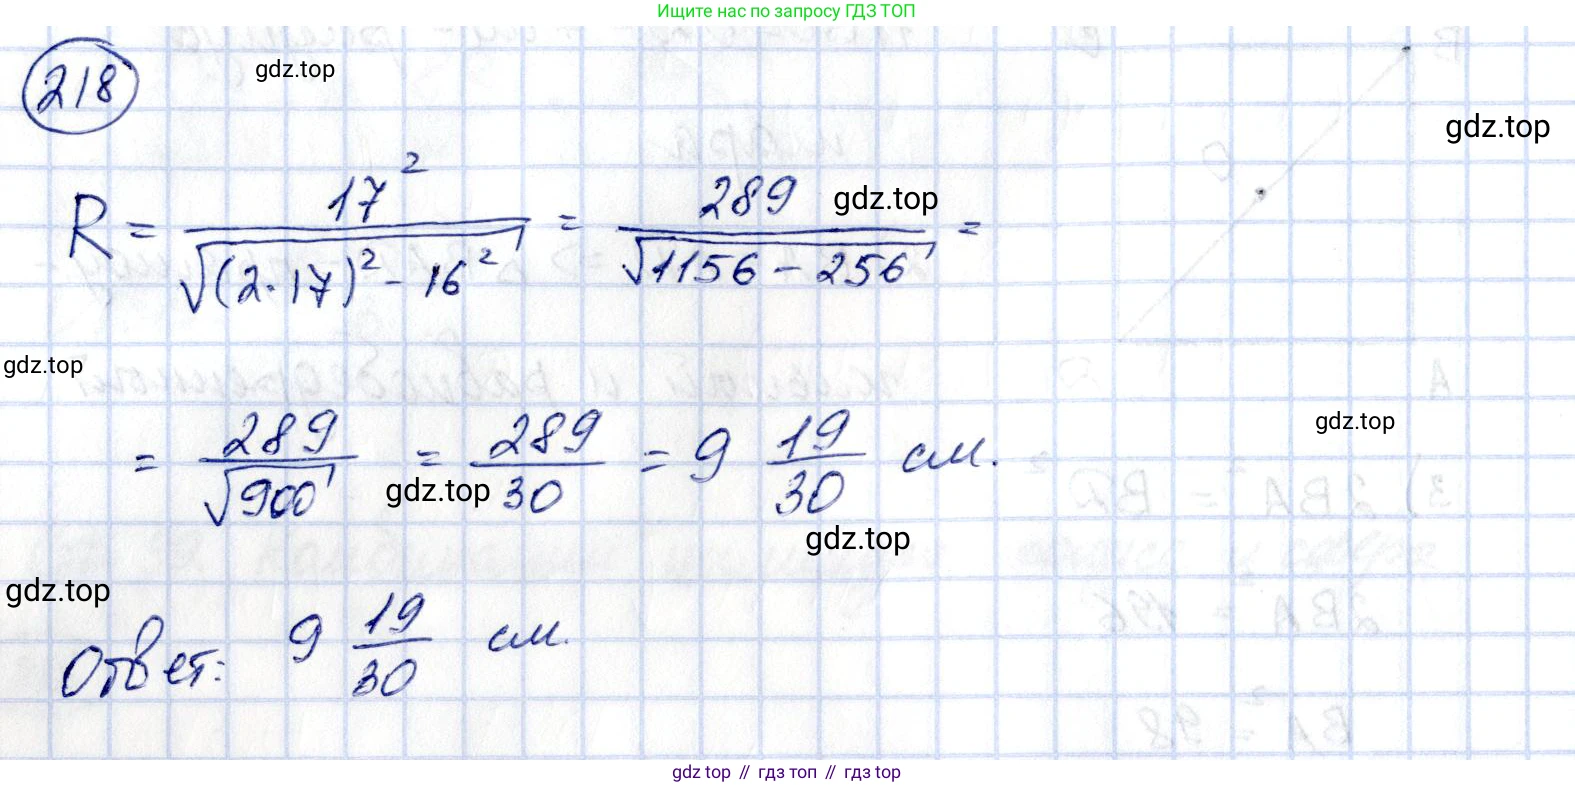 Ищите нас по запросу ГДЗ ТОП
218
gdz.top
gdz.top
R = 17² / √((2·17)² − 16²) = 289 / √(1156 − 256) =
gdz.top
gdz.top
= 289 / √900 = 289 / 30 = 9 19/30 см.
gdz.top
gdz.top
gdz.top
gdz.top
Ответ: 9 19/30 см.
gdz top // гдз топ // гдз top